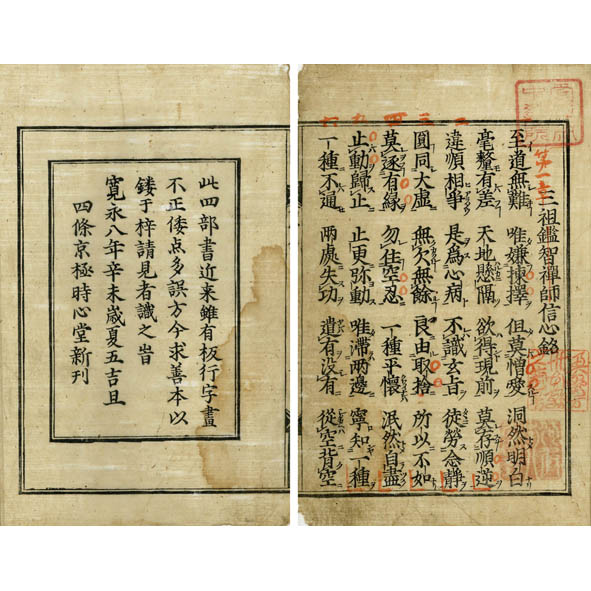 三祖鑑智禪師信心銘
至道無難 唯嫌揀擇 但莫憎愛 洞然明白
毫釐有差 天地懸隔 欲得現前 莫存順逆
違順相爭 是為心病 不識玄旨 徒勞念靜
圓同大虛 無欠無餘 良由取捨 所以不如
莫逐有緣 勿住空忍 一種平懷 泯然自盡
止動歸止 止更弥動 唯滯兩邊 寧知一種
一種不通 兩處失功 遣有没有 從空背空
此四部書近来雖有板行字畫
不正倭点多誤方今求善本以
鋟于梓請見者識之旹
寛永八年辛未歳夏五吉旦
四條京極時心堂新刊